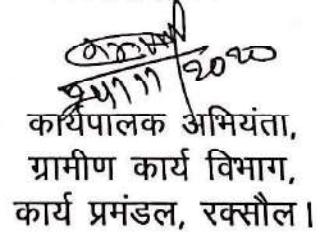 2020
कार्यपालक अभियंता,
ग्रामीण कार्य विभाग,
कार्य प्रमंडल, रक्सौल।